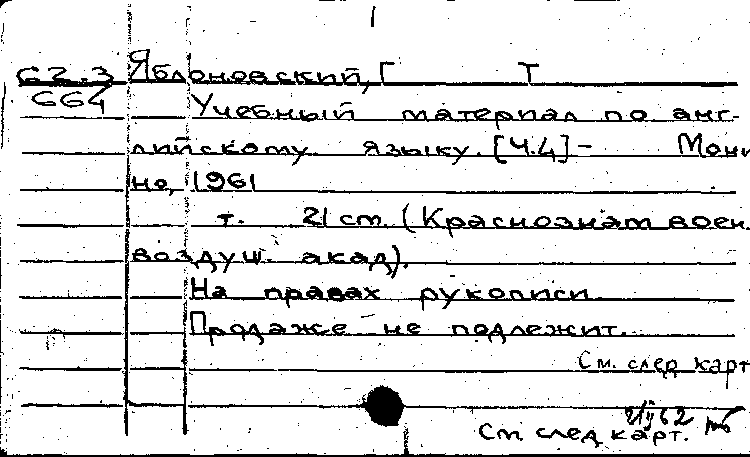 1
62.3 Яблоновский, Г Т
664 Учебный материал по анг-
лийскому языку. [Ч.4] - Мони
но, 1961
т. 21 cm. (Краснознам воен.
воздуш. акад).
На правах рукописи
Продаже не подлежит.
См. след карт
21/II 62
См след карт.